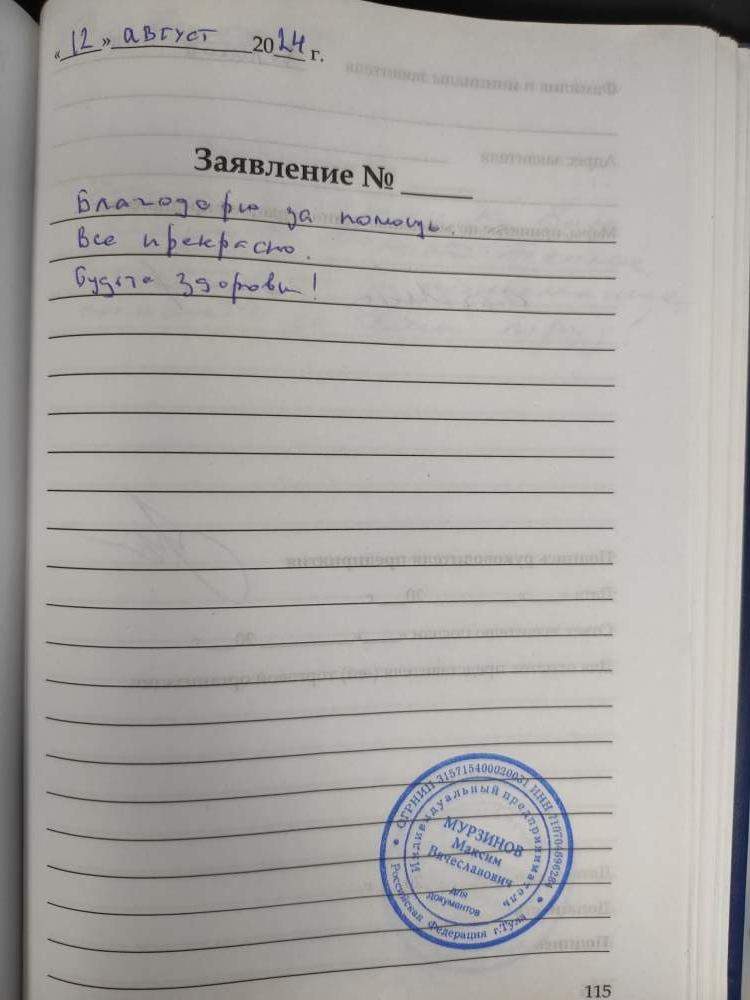 « 12 » август 2024 г.
Заявление № ____
Благодарю за помощь.
Все прекрасно.
Будьте здоровы!
ОГРНИП 315715400020031 ИНН
Индивидуальный предприниматель
МУРЗИНОВ
Максим
Вячеславович
для
документов
Российская Федерация г.Тула
115